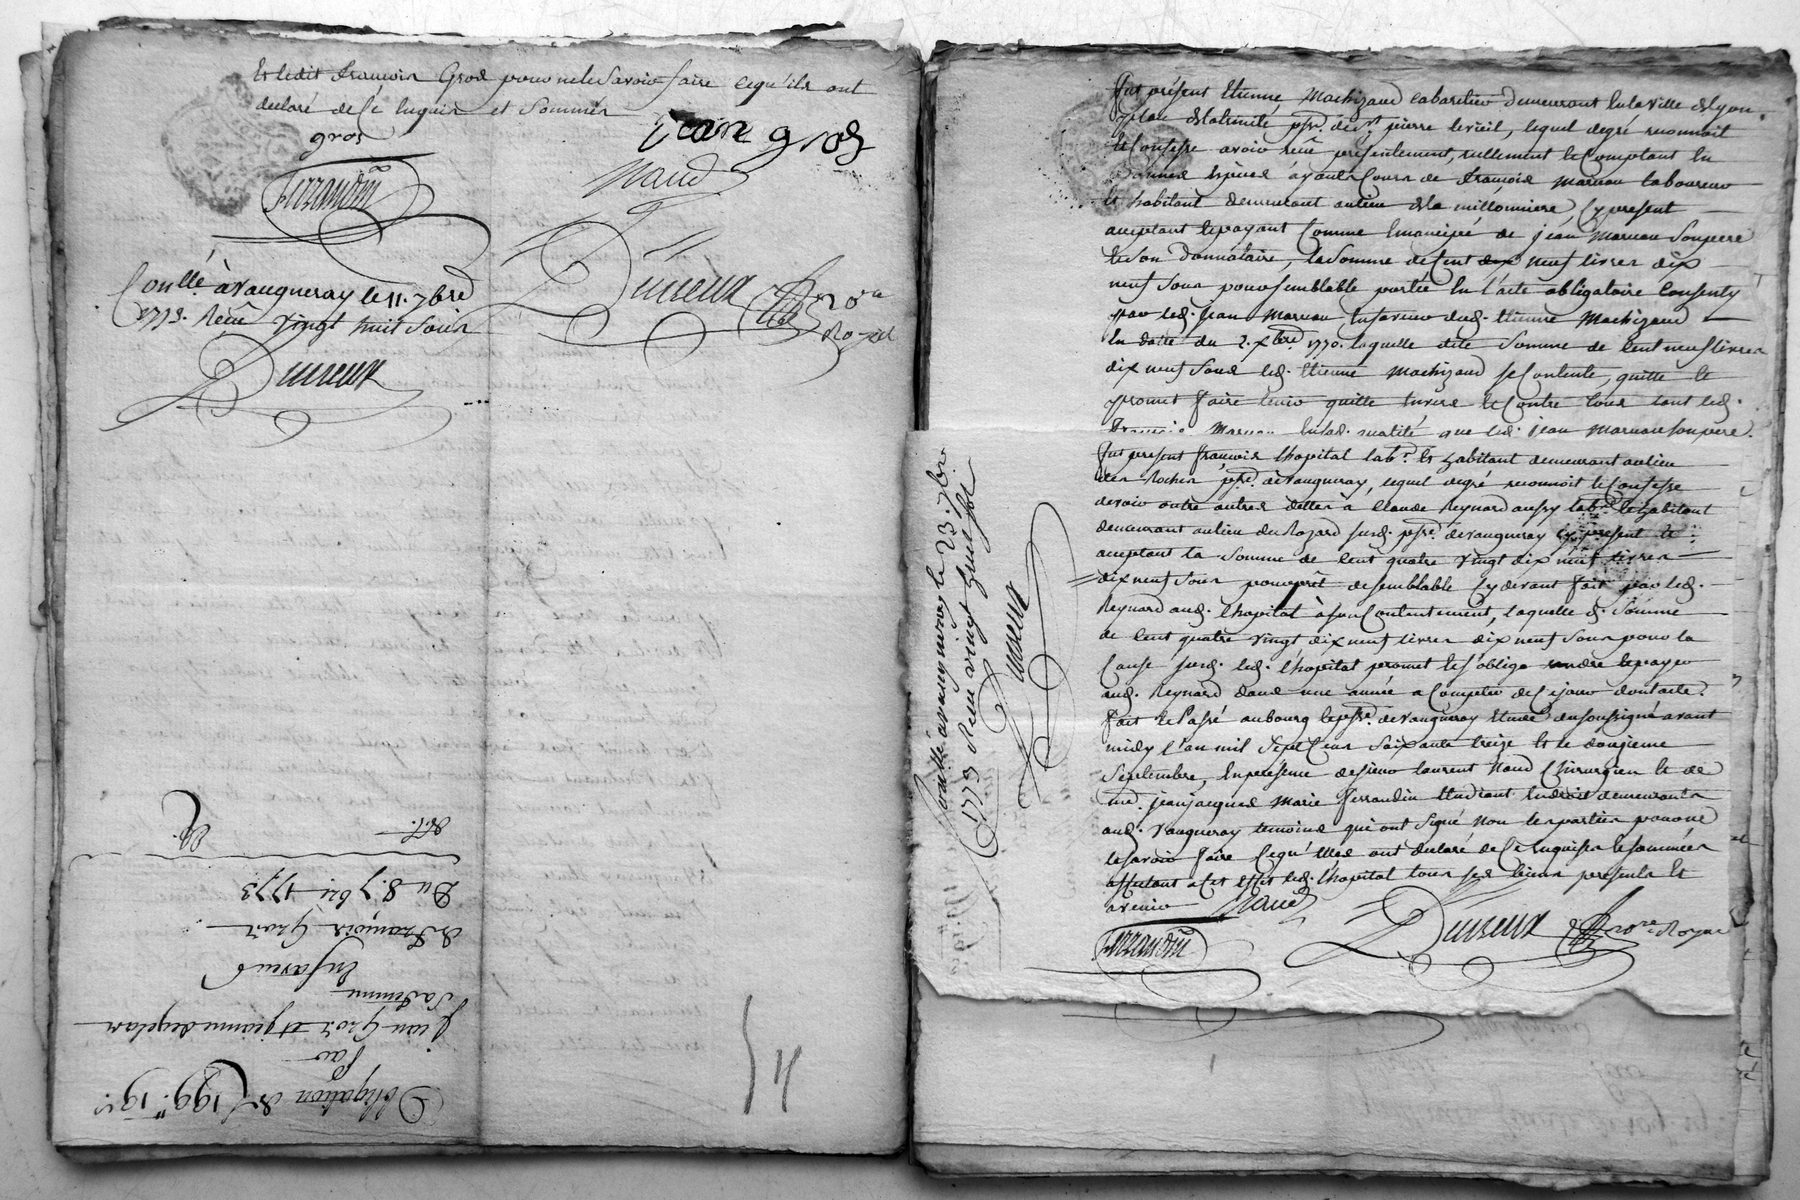 Et ledit françois Gros pour ne le savoir faire ce qu'ils ont
declaré de ce enquis et sommés
gros
jean gros
Naud
ferrandin
Duiseux
no.re Royal
Conllé à Vaugneray le 11. 7bre
1773. Reçu vingt huit sous
Duiseux
Obligation de 199.# 19.s
par
jean Gros et
sa femme
En faveur
de françois Gros
Du 8. 7bre 1773
Fut présent Etienne Machizaud cabaretier demeurant en la ville de Lyon
place de la trinité psse. de st. pierre le vieil, lequel de gré reconnoit
et Confesse avoir reçu présentement, reellement et Comptant en
bonnes espèces ayant Cours de françois Marnau laboureur
et habitant demeurant au lieu de la millonniere, Cy présent
acceptant et payant Comme Emancipé de jean Marnau son pere
et son Donnataire, la somme de Cent neuf livres dix
neuf sous pour semblable portée en l'acte obligatoire Consenty
par led. jean Marnau En faveur dud. Etienne Machizaud
En datte du 2. xbre 1770. laquelle dite somme de Cent neuf livres
dix neuf sous led. Etienne Machizaud se Contente, quitte et
promet faire tenir quitte Envers et Contre tous tant led.
françois Marnau Esd. qualité que led. jean Marnau son pere.
Fut présent françois lhopital labr. et habitant demeurant au lieu
des Roches psse. de Vaugneray, lequel de gré reconnoit et Confesse
devoir outre autres dettes à Claude Reynard aussy labr. et habitant
demeurant au lieu du Rozard susd. psse. de Vaugneray Cy présent et
acceptant la somme de Cent quatre vingt dix neuf livres
dix neuf sous pour prêt de semblable Cy devant fait par led.
Reynard aud. lhopital à son Contentement, laquelle d. somme
de Cent quatre vingt dix neuf livres dix neuf sous pour la
Cause susd. led. lhopital promet et s'oblige rendre et payer
aud. Reynard dans une année a Compter de Ce jour dont acte.
Fait et Passé au bourg et psse. de Vaugneray Etude du soussigné avant
midy l'an mil sept Cent soixante treize et le douzieme
septembre, En présence de sieur laurent Naud Chirurgien et de
me. jean jacques Marie ferrandin Etudiant demeurants
aud. Vaugneray temoins qui ont signé non les parties pour ne
le savoir faire Ce qu'Elles ont declaré de Ce enquises et sommées
affectant a Cet effet led. lhopital tous ses biens présents et
avenir
Naud
ferrandin
Duiseux
no.re Royal
Conllé à Vaugneray le 23. 7bre
1773 Reçu vingt huit sols
Duiseux